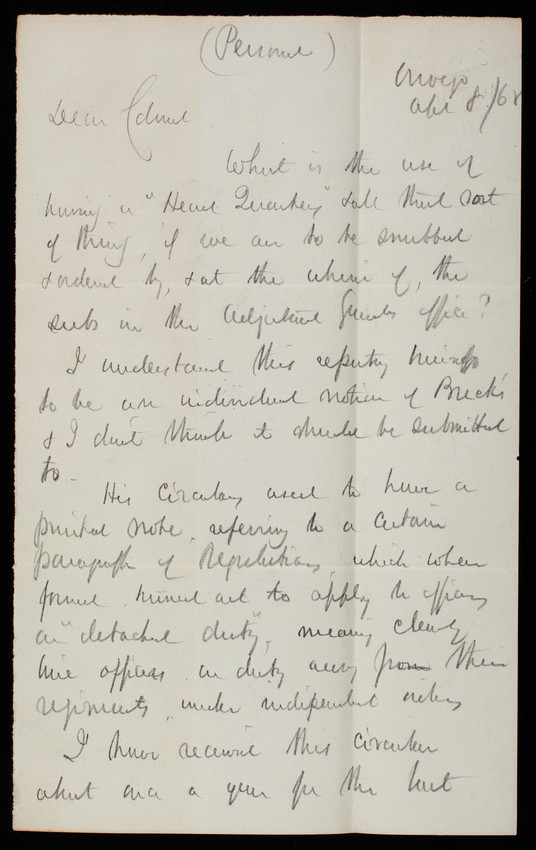 (Personal)
Oswego
Apl 8/68
Dear Colonel
What is the use of
having a "Head Quarters" & all that sort
of thing, if we are to be snubbed
& ordered by, & at the whim of, the
subs in the Adjutant Generals office?
I understand this reporting business
to be an individual notion of Breck's
& I don't think it should be submitted
to -
His Circulars used to have a
printed note, referring to a certain
paragraph of Regulations, which when
found, turned out to apply to officers
on "detached duty", meaning clearly
line officers on duty away from their
regiments, under independent orders
I have received this circular
about once a year for the last